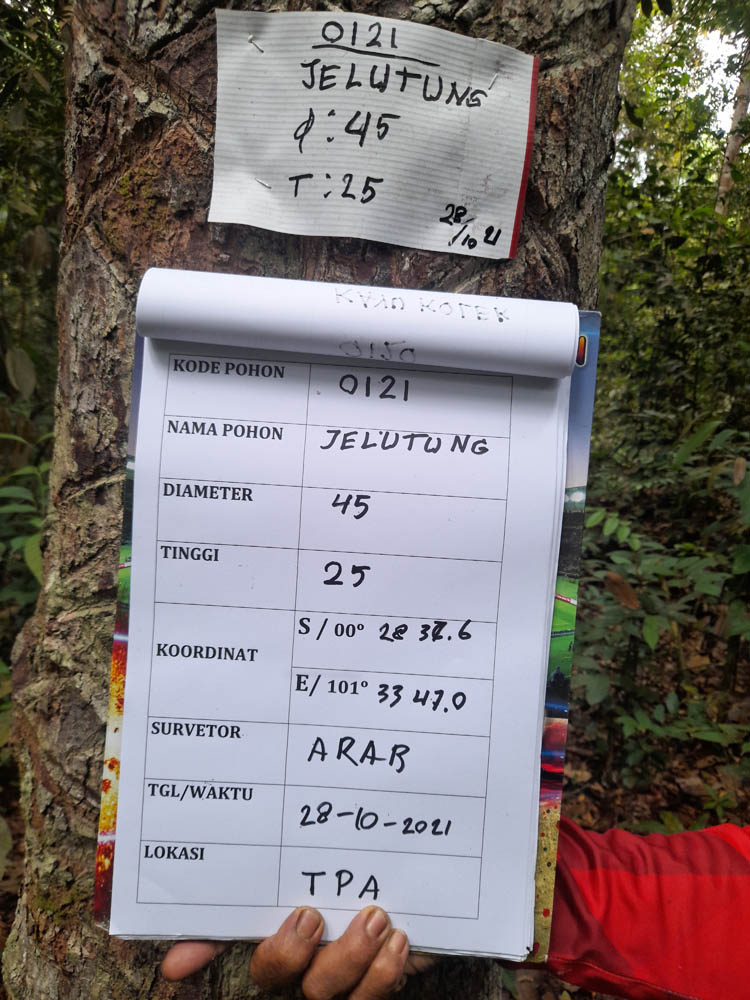 0121
JELUTUNG
φ : 45
T : 25
28/10 21
KAYU KOLEK
KODE POHON 0121
NAMA POHON JELUTUNG
DIAMETER 45
TINGGI 25
KOORDINAT
S / 00° 28
E/ 101° 33 47.0
SURVETOR ARAB
TGL/WAKTU 28-10-2021
LOKASI TPA